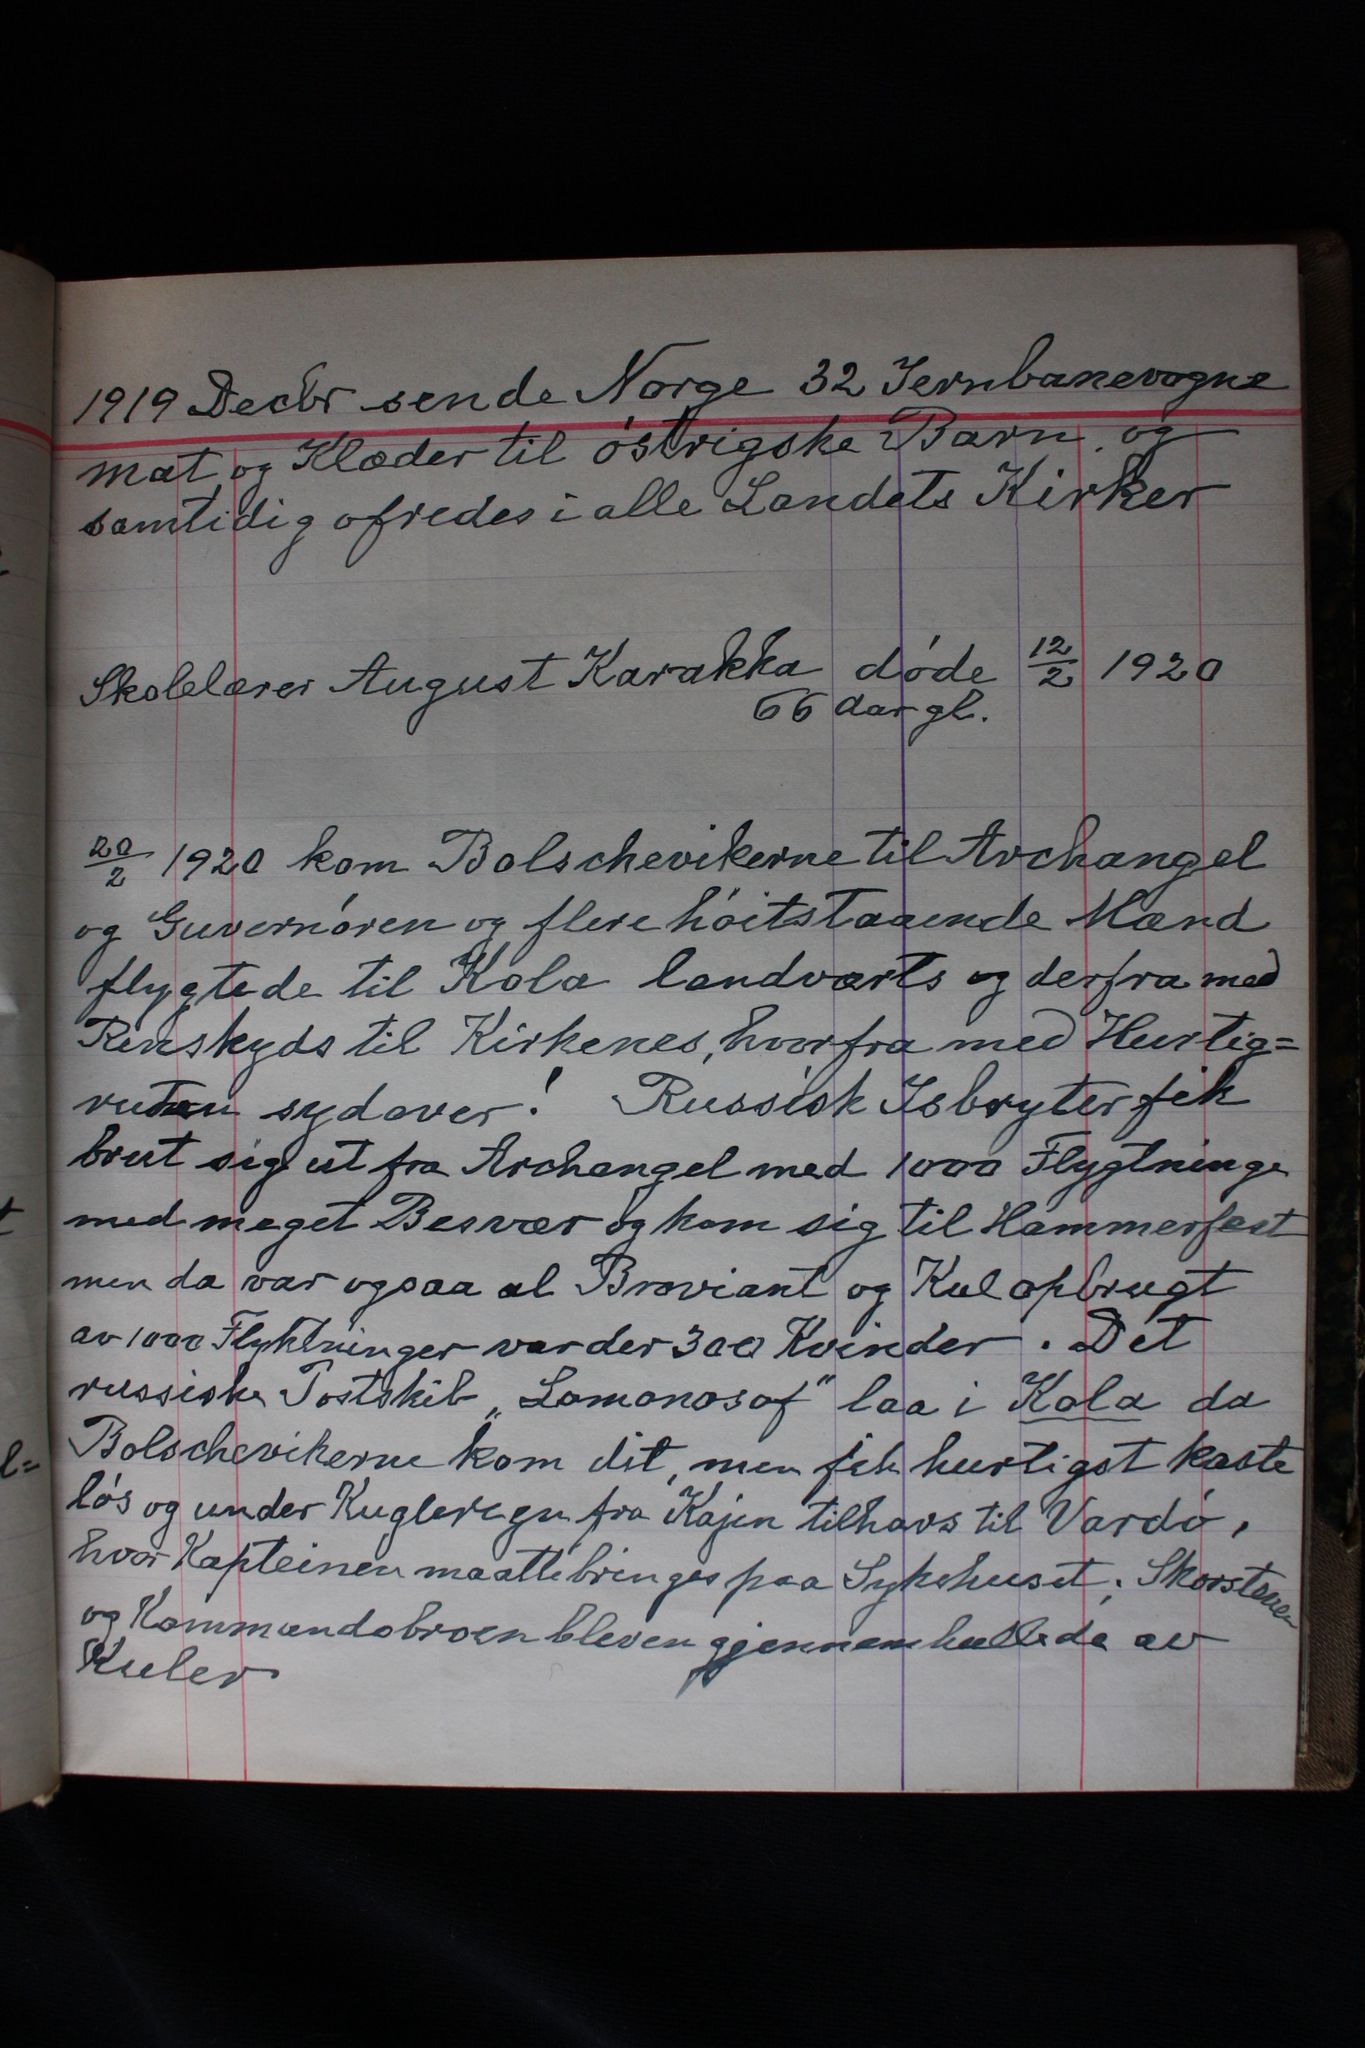 1919 Decbr sende Norge 32 Jernbanevogne
mat og Klæder til östrigske Barn, og
samtidig ofredes i alle Landets Kirker
Skolelærer August Karakka döde 12/2 1920
66 aar gl.
20/2 1920 kom Bolschevikerne til Archangel
og Guvernören og flere höitstaaende Mænd
flygtede til Kola landværts og derfra med
Renskyds til Kirkenes, hvorfra med Hurtig=
ruten sydover! Russisk Isbryter fik
brut sig ut fra Archangel med 1000 Flygtninge
med meget Besvær og kom sig til Hammerfest
men da var ogsaa al Proviant og Kul opbrugt
av 1000 Flyktninger var der 300 Kvinder. Det
russiske Postskib „Lomonosof" laa i Kola da
Bolschevikerne kom dit, men fik hurtigst kaste
lös og under Kugleregn fra Kajen tilhavs til Vardö,
hvor Kapteinen maatte bringes paa Sykehuset; Skorstenen
og Kommandobroen bleven gjennemhullede av
Kuler